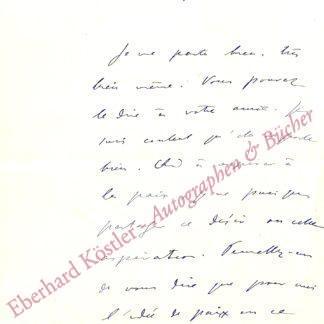 Je me porte bien, très
bien même. Vous pouvez
le dire à votre amie. Je
suis content qu'elle
bien.
la paix, que
partage ce désir ou cette
aspiration. Permettez-moi
de vous dire que pour moi
l'idée de paix en ce
Eberhard Köstler - Autographen & Bücher